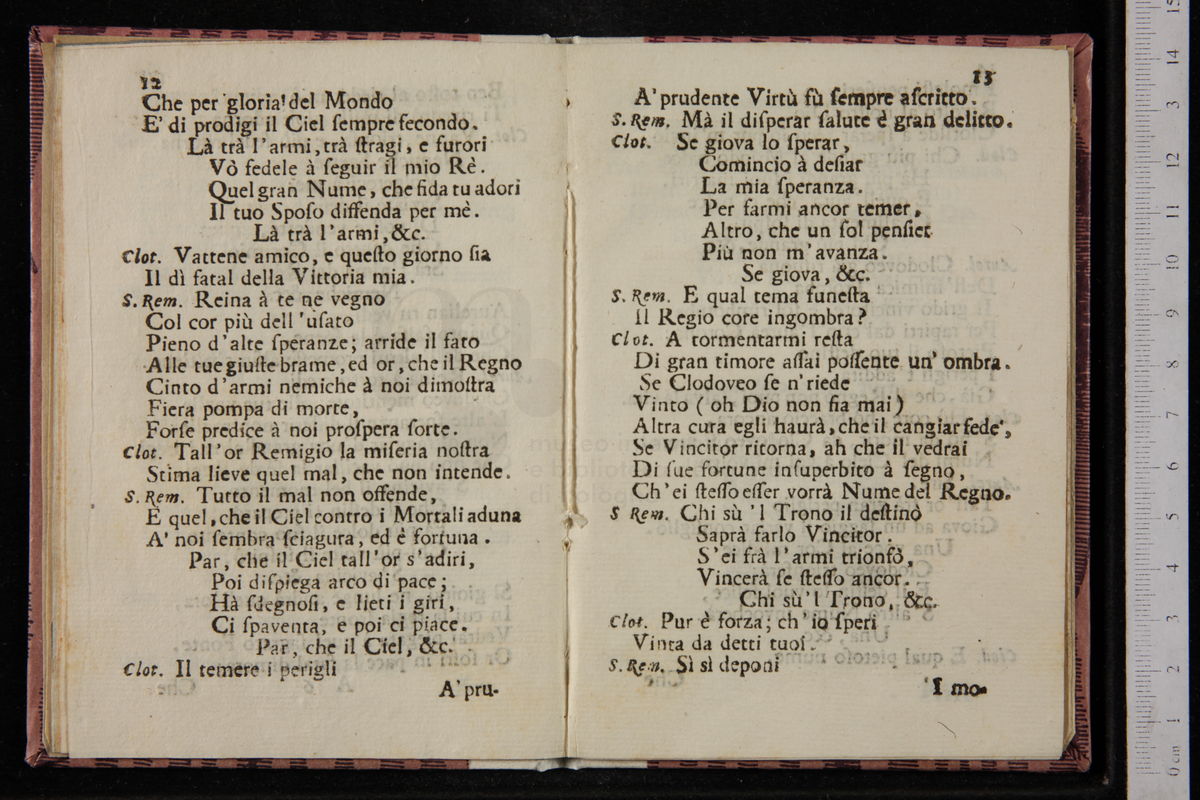 12
Che per gloria del Mondo
E' di prodigi il Ciel ſempre fecondo.
Là trà l'armi, trà ſtragi, e furori
Vò fedele à ſeguir il mio Rè.
Quel gran Nume, che fida tu adori
Il tuo Spoſo diffenda per mè.
Là trà l'armi, &c.
Clot. Vattene amico, e queſto giorno ſia
Il dì fatal della Vittoria mia.
S. Rem. Reina à te ne vegno
Col cor più dell'uſato
Pieno d'alte ſperanze; arride il fato
Alle tue giuſte brame, ed or, che il Regno
Cinto d'armi nemiche à noi dimoſtra
Fiera pompa di morte,
Forſe predice à noi proſpera ſorte.
Clot. Tall'or Remigio la miſeria noſtra
Stima lieve quel mal, che non intende.
S. Rem. Tutto il mal non offende,
E quel, che il Ciel contro i Mortali aduna
A' noi ſembra ſciagura, ed è fortuna.
Par, che il Ciel tall'or s'adiri,
Poi diſpiega arco di pace;
Hà ſdegnoſi, e lieti i giri,
Ci ſpaventa, e poi ci piace.
Par, che il Ciel, &c.
Clot. Il temere i perigli
A' pru-
13
A' prudente Virtù fù ſempre aſcritto.
S. Rem. Mà il diſperar ſalute è gran delitto.
Clot. Se giova lo ſperar,
Comincio à deſiar
La mia ſperanza.
Per farmi ancor temer,
Altro, che un ſol penſier
Più non m'avanza.
Se giova, &c.
S. Rem. E qual tema funeſta
Il Regio core ingombra?
Clot. A tormentarmi reſta
Di gran timore aſſai poſſente un' ombra.
Se Clodoveo ſe n'riede
Vinto ( oh Dio non fia mai )
Altra cura egli haurà, che il cangiar fede,
Se Vincitor ritorna, ah che il vedrai
Di ſue fortune inſuperbito à ſegno,
Ch'ei ſteſſo eſſer vorrà Nume del Regno.
S Rem. Chi sù 'l Trono il deſtinò
Saprà farlo Vincitor.
S'ei frà l'armi trionfò,
Vincerà ſe ſteſſo ancor.
Chi sù 'l Trono, &c.
Clot. Pur è forza; ch'io ſperi
Vinta da detti tuoi.
S. Rem. Sì sì deponi
I mo-